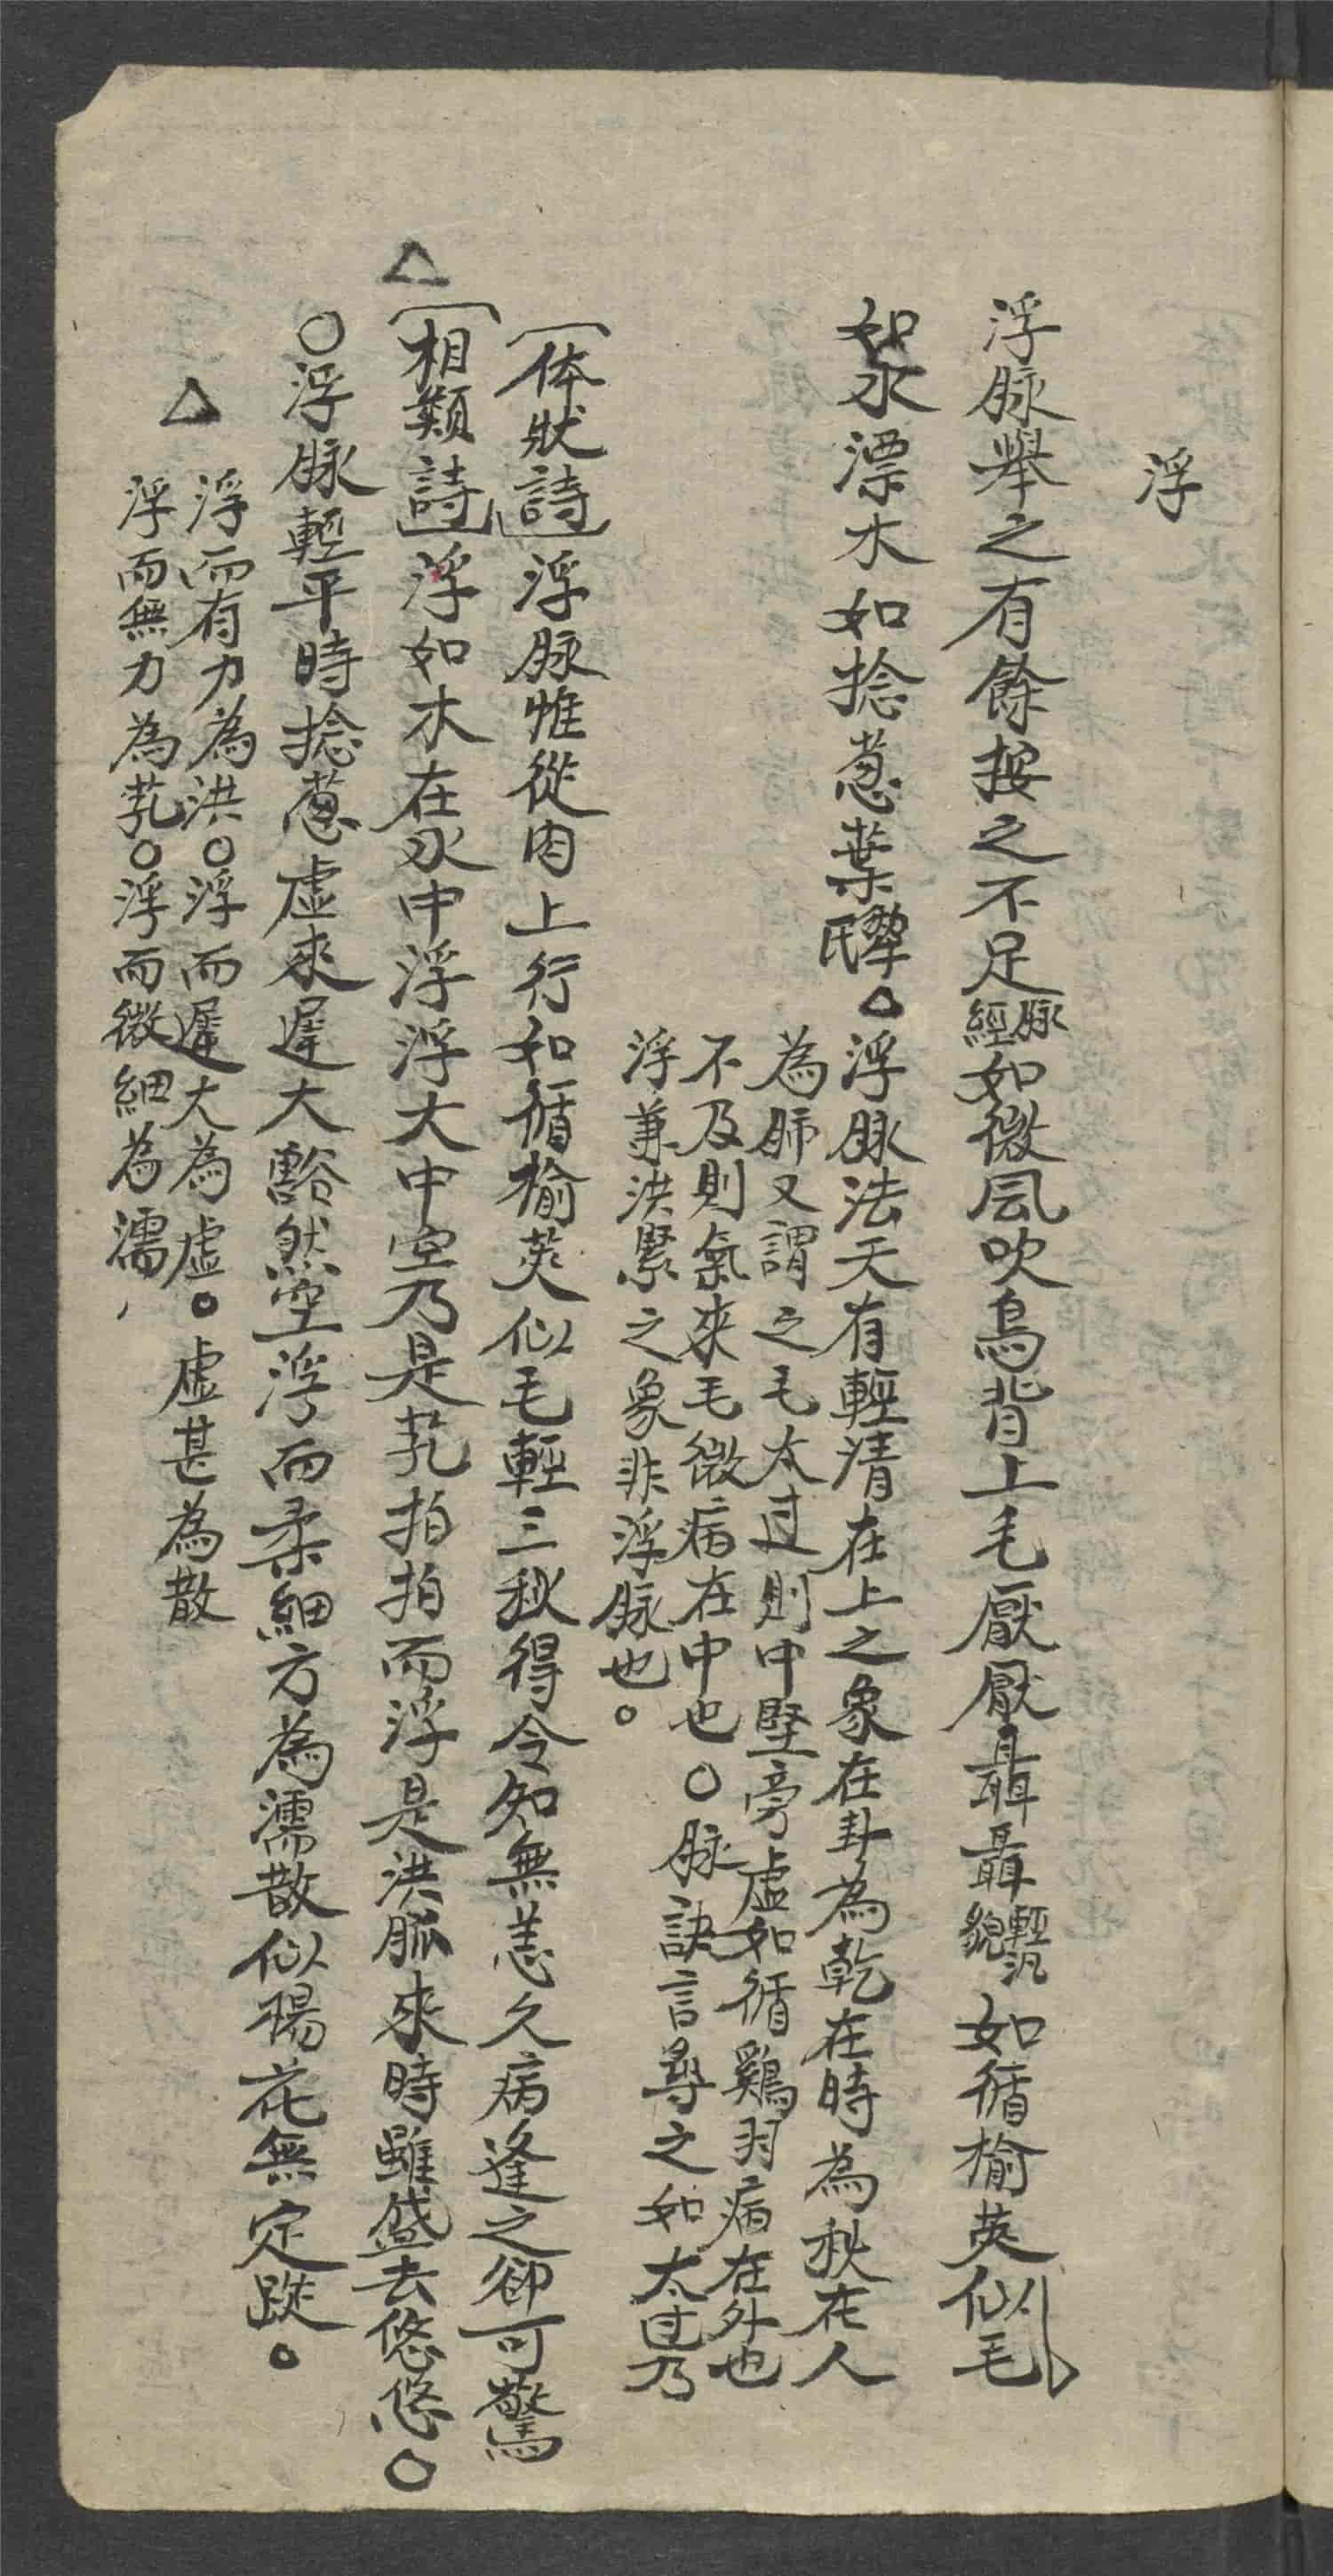 浮
浮脉舉之有餘按之不足脉經如微風吹鳥背上毛厭厭聶聶輕汎貌如循榆莢似毛
如水漂木如捻葱葉黎氏。浮脉法天有輕清在上之象在卦為乾在時為秋在人
為肺又謂之毛太过則中堅旁虛如循鷄羽病在外也
不及則氣來毛微病在中也〇脉訣言尋之如太过乃
浮兼洪緊之象非浮脉也。
〔体狀詩〕浮脉惟從肉上行如循榆莢似毛輕三秋得令知無恙久病逢之卻可驚
△〔相類詩〕浮如木在水中浮浮大中空乃是芤拍拍而浮是洪脈來時雖盛去悠悠〇
〇浮脉輕平時捻葱虛來遲大豁然空浮而柔細方為濡散似楊花無定踪。
△浮而有力為洪〇浮而遲大為虛。虛甚為散
浮而無力為芤〇浮而微細為濡